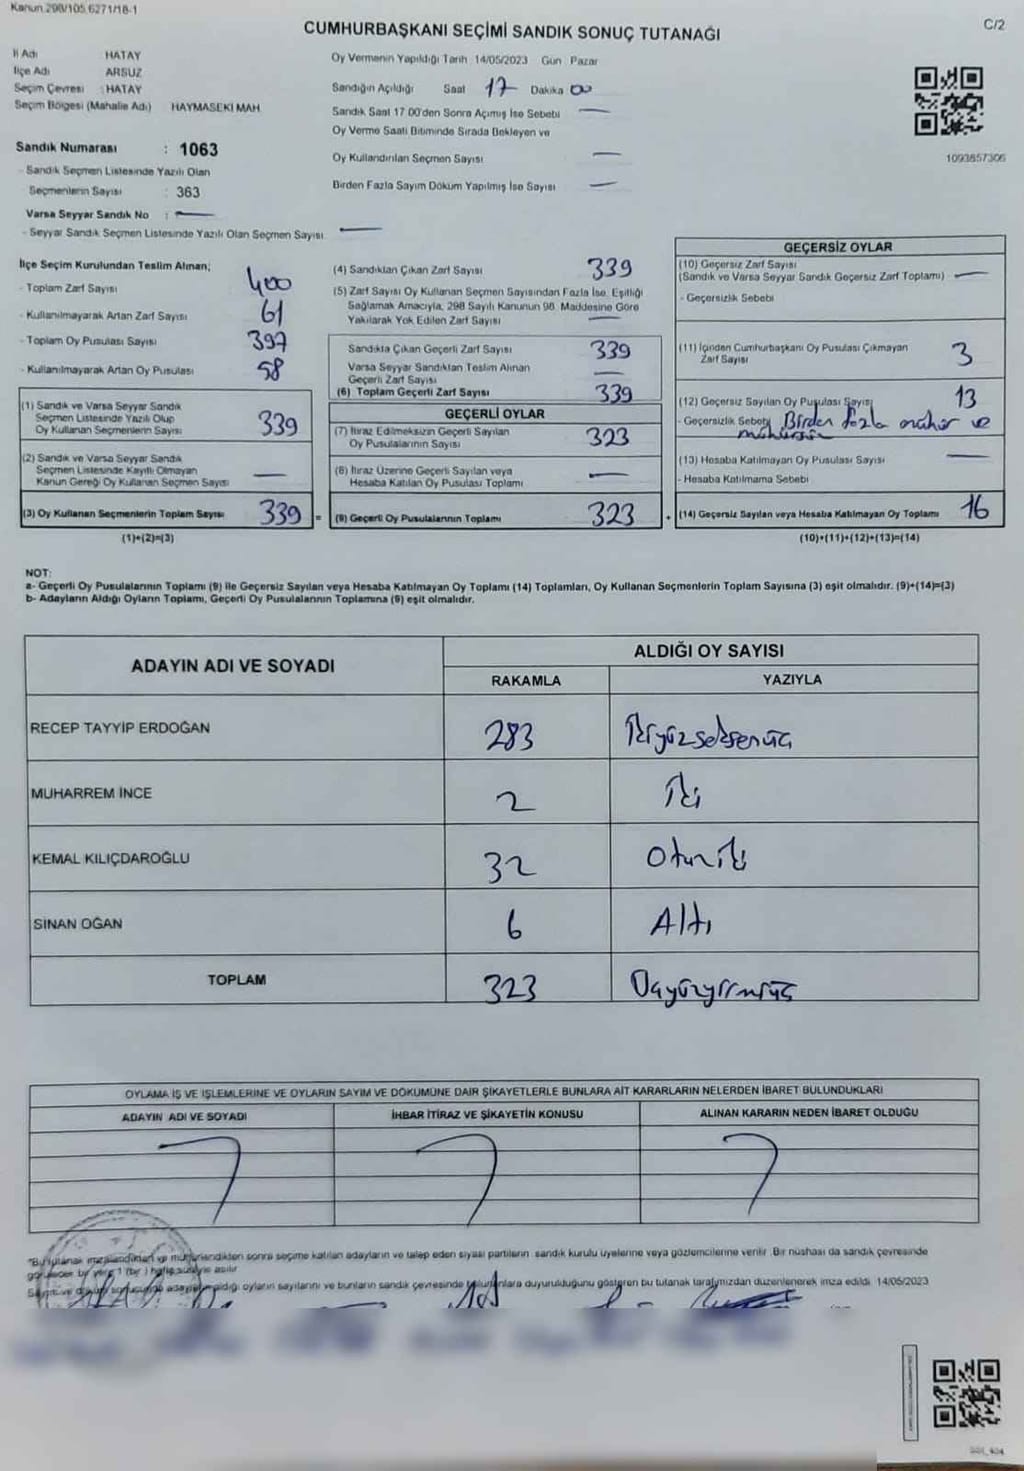 Kanun 298/105,6271/18-1
CUMHURBAŞKANI SEÇİMİ SANDIK SONUÇ TUTANAĞI
C/2
İl Adı : HATAY
İlçe Adı : ARSUZ
Seçim Çevresi : HATAY
Seçim Bölgesi (Mahalle Adı) HAYMASEKİ MAH.
Sandık Numarası : 1063
- Sandık Seçmen Listesinde Yazılı Olan
Seçmenlerin Sayısı : 363
Varsa Seyyar Sandık No : —
- Seyyar Sandık Seçmen Listesinde Yazılı Olan Seçmen Sayısı —
Oy Vermenin Yapıldığı Tarih 14/05/2023 Gün Pazar
Sandığın Açıldığı Saat 17 Dakika 00
Sandık Saat 17.00'den Sonra Açımış İse Sebebi —
Oy Verme Saati Bitiminde Sırada Bekleyen ve
Oy Kullandırılan Seçmen Sayısı —
Birden Fazla Sayım Döküm Yapılmış İse Sayısı —
1093857306
İlçe Seçim Kurulundan Teslim Alınan;
- Toplam Zarf Sayısı 400
- Kullanılmayarak Artan Zarf Sayısı 61
- Toplam Oy Pusulası Sayısı 397
- Kullanılmayarak Artan Oy Pusulası 58
(1) Sandık ve Varsa Seyyar Sandık
Seçmen Listesinde Yazılı Olup
Oy Kullanan Seçmenlerin Sayısı 339
(2) Sandık ve Varsa Seyyar Sandık
Seçmen Listesinde Kayıtlı Olmayan
Kanun Gereği Oy Kullanan Seçmen Sayısı —
(3) Oy Kullanan Seçmenlerin Toplam Sayısı 339 =
(1)+(2)=(3)
(4) Sandıktan Çıkan Zarf Sayısı 339
(5) Zarf Sayısı Oy Kullanan Seçmen Sayısından Fazla İse, Eşitliği
Sağlamak Amacıyla, 298 Sayılı Kanunun 98. Maddesine Göre
Yakılarak Yok Edilen Zarf Sayısı —
Sandıkta Çıkan Geçerli Zarf Sayısı 339
Varsa Seyyar Sandıktan Teslim Alınan
Geçerli Zarf Sayısı —
(6) Toplam Geçerli Zarf Sayısı 339
GEÇERLİ OYLAR
(7) İtiraz Edilmeksizin Geçerli Sayılan
Oy Pusulalarının Sayısı 323
(8) İtiraz Üzerine Geçerli Sayılan veya
Hesaba Katılan Oy Pusulası Toplamı —
(9) Geçerli Oy Pusulalarının Toplamı 323 +
GEÇERSİZ OYLAR
(10) Geçersiz Zarf Sayısı
(Sandık ve Varsa Seyyar Sandık Geçersiz Zarf Toplamı) —
- Geçersizlik Sebebi
(11) İçinden Cumhurbaşkanı Oy Pusulası Çıkmayan
Zarf Sayısı 3
(12) Geçersiz Sayılan Oy Pusulası Sayısı 13
- Geçersizlik Sebebi Birden fazla mühür ve
mühürsüz
(13) Hesaba Katılmayan Oy Pusulası Sayısı —
- Hesaba Katılmama Sebebi
(14) Geçersiz Sayılan veya Hesaba Katılmayan Oy Toplamı 16
(10)+(11)+(12)+(13)=(14)
NOT:
a- Geçerli Oy Pusulalarının Toplamı (9) ile Geçersiz Sayılan veya Hesaba Katılmayan Oy Toplamı (14) Toplamları, Oy Kullanan Seçmenlerin Toplam Sayısına (3) eşit olmalıdır. (9)+(14)=(3)
b- Adayların Aldığı Oyların Toplamı, Geçerli Oy Pusulalarının Toplamına (9) eşit olmalıdır.
ADAYIN ADI VE SOYADI
ALDIĞI OY SAYISI
RAKAMLA YAZIYLA
RECEP TAYYİP ERDOĞAN 283 İkiyüzseksenüç
MUHARREM İNCE 2 İki
KEMAL KILIÇDAROĞLU 32 Otuziki
SİNAN OĞAN 6 Altı
TOPLAM 323 Üçyüzyirmiüç
OYLAMA İŞ VE İŞLEMLERİNE VE OYLARIN SAYIM VE DÖKÜMÜNE DAİR ŞİKAYETLERLE BUNLARA AİT KARARLARIN NELERDEN İBARET BULUNDUKLARI
ADAYIN ADI VE SOYADI İHBAR İTİRAZ VE ŞİKAYETİN KONUSU ALINAN KARARIN NEDEN İBARET OLDUĞU
*Bu tutanak imzalandıktan ve mühürlendikten sonra seçime katılan adayların ve talep eden siyasi partilerin sandık kurulu üyelerine veya gözlemcilerine verilir. Bir nüshası da sandık çevresinde
görülecek bir yere 1 (bir) hafta süreyle asılır
Sayım ve döküm sonucunda adayların aldığı oyların sayılarını ve bunların sandık çevresinde bulunanlara duyurulduğunu gösteren bu tutanak tarafımızdan düzenlenerek imza edildi. 14/05/2023